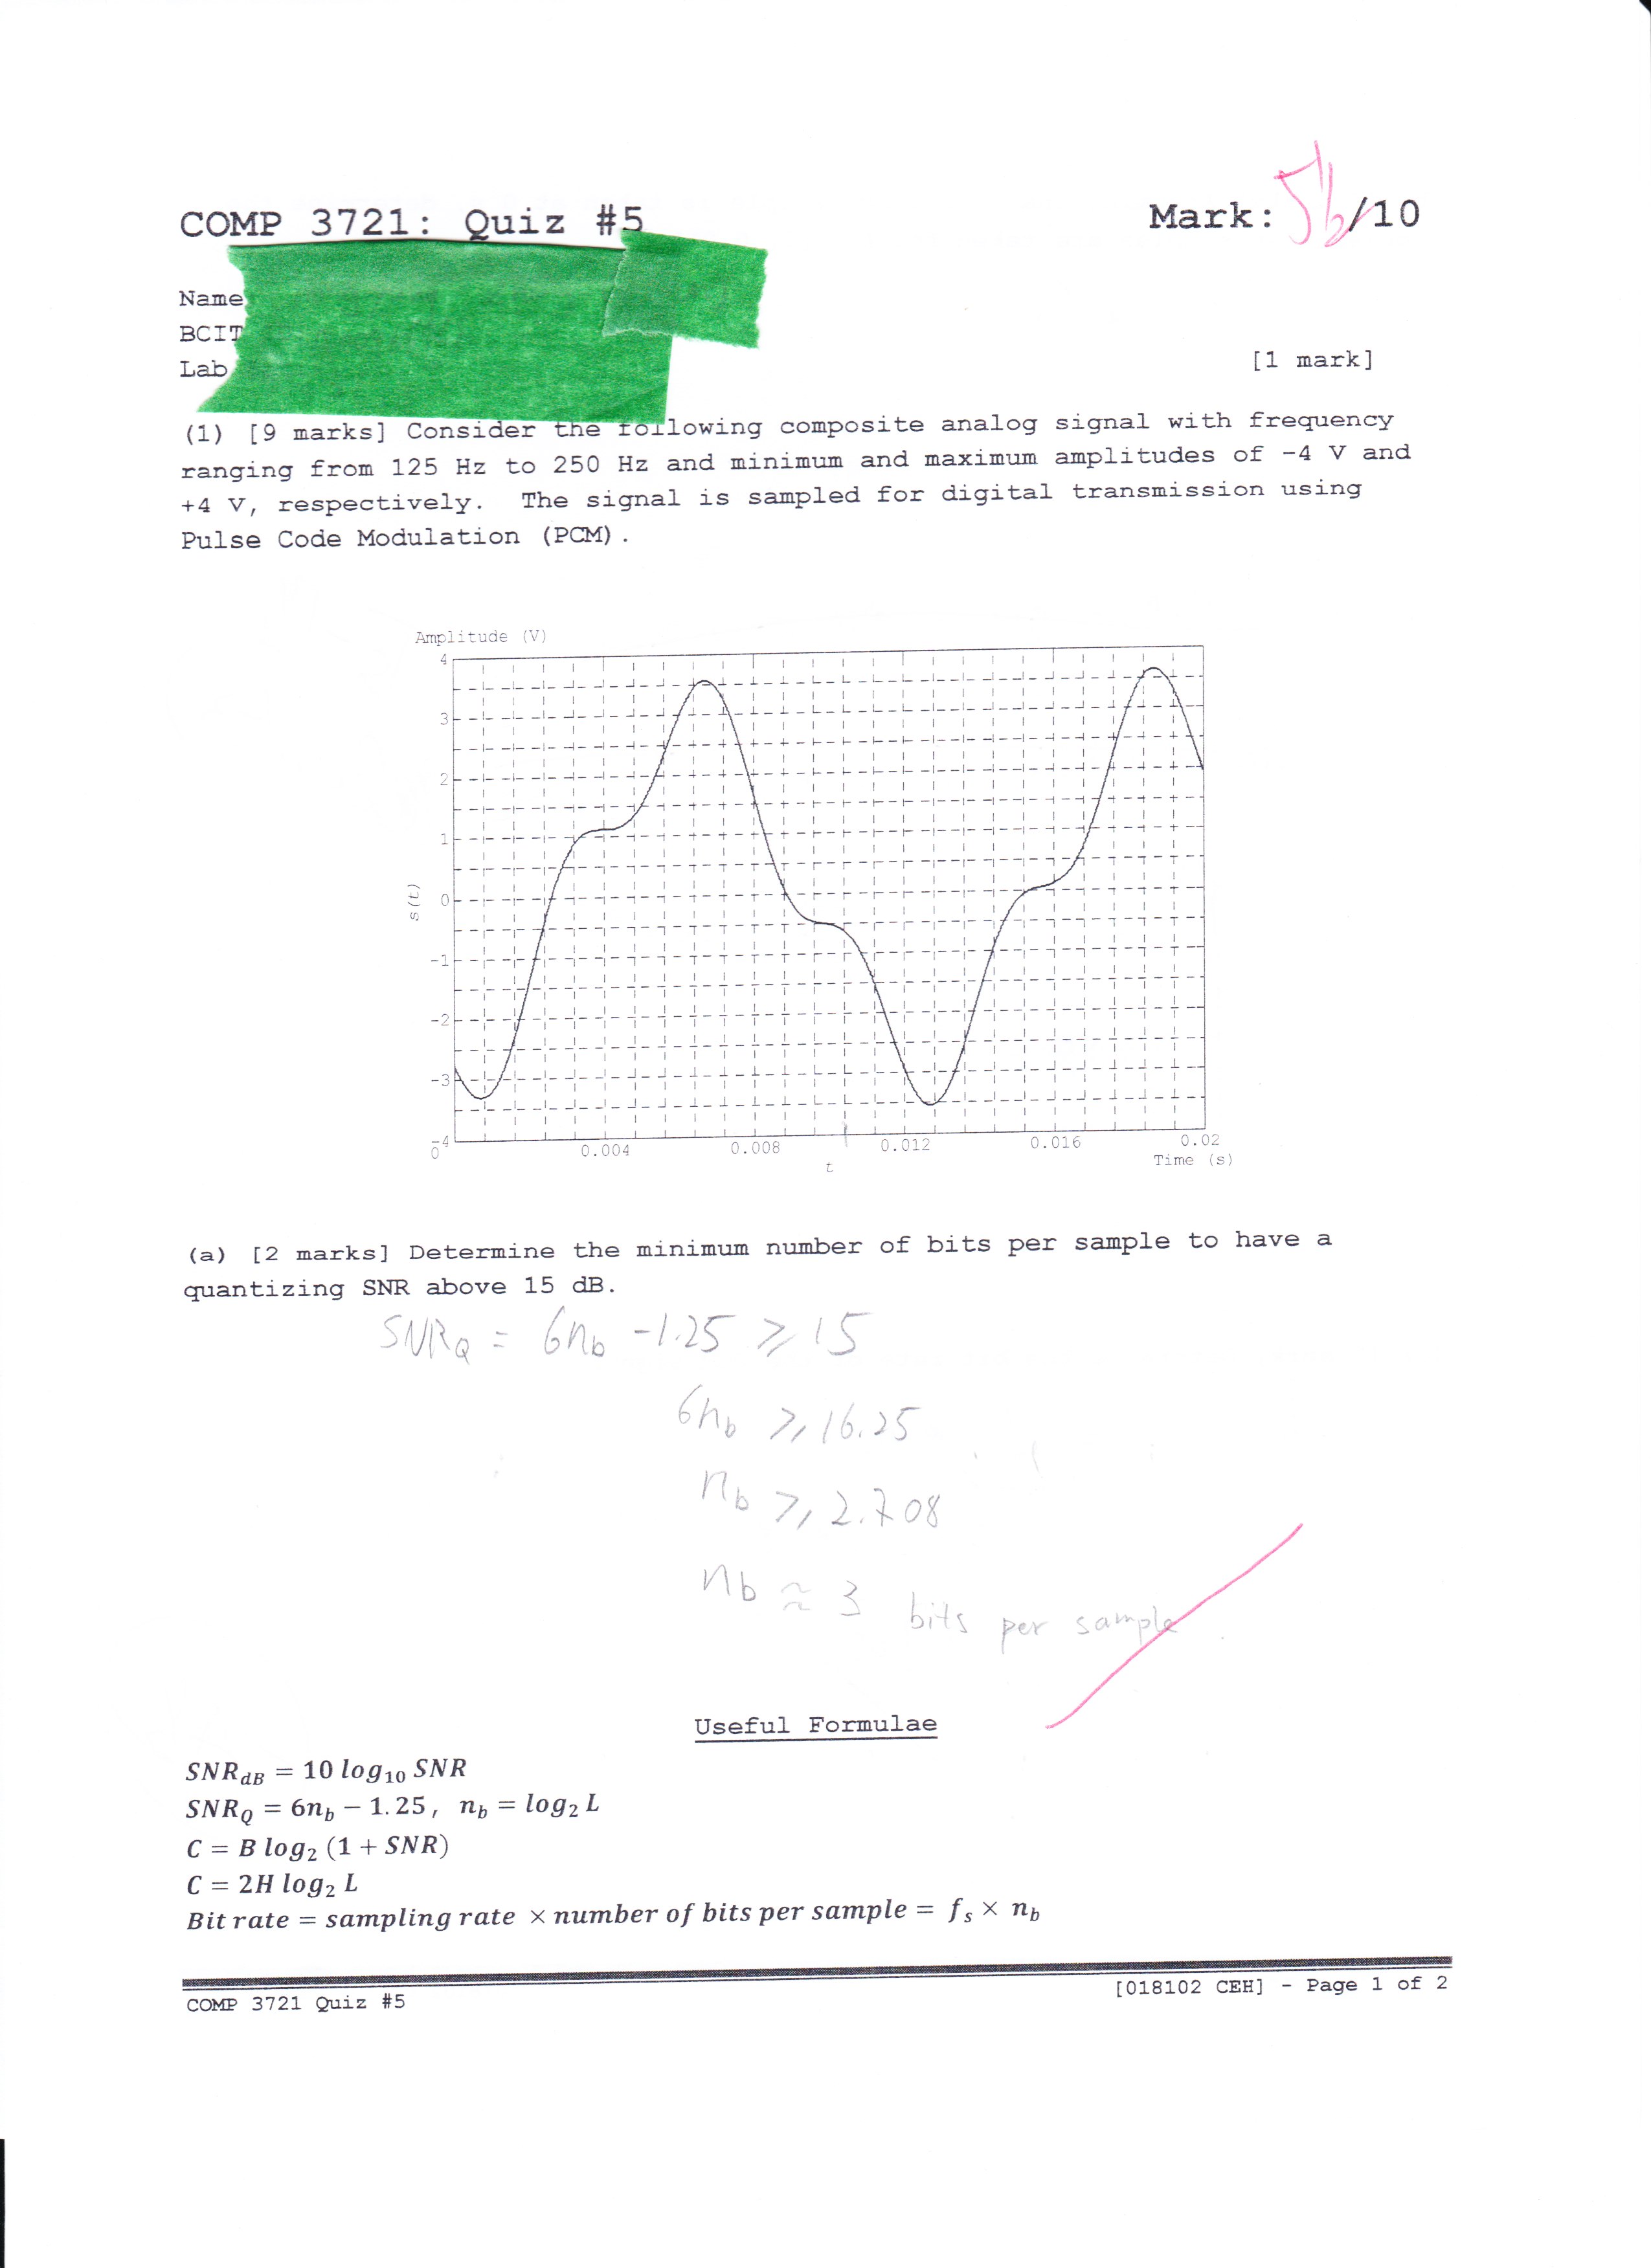 COMP 3721: Quiz #5
Mark: /10
Name
BCIT
Lab
[1 mark]
(1) [9 marks] Consider the following composite analog signal with frequency
ranging from 125 Hz to 250 Hz and minimum and maximum amplitudes of -4 V and
+4 V, respectively. The signal is sampled for digital transmission using
Pulse Code Modulation (PCM).
Amplitude (V)
4
3
2
1
0
-1
-2
-3
-4
s(t)
0 0.004 0.008 0.012 0.016 0.02
t
Time (s)
(a) [2 marks] Determine the minimum number of bits per sample to have a
quantizing SNR above 15 dB.
SNRQ = 6nb -1.25 ⩾ 15
6nb ⩾ 16.25
nb ⩾ 2.708
nb ≈ 3 bits per sample
Useful Formulae
SNR_dB = 10 log₁₀ SNR
SNR_Q = 6n_b − 1.25, n_b = log₂ L
C = B log₂ (1 + SNR)
C = 2H log₂ L
Bit rate = sampling rate × number of bits per sample = f_s × n_b
COMP 3721 Quiz #5
[018102 CEH] - Page 1 of 2